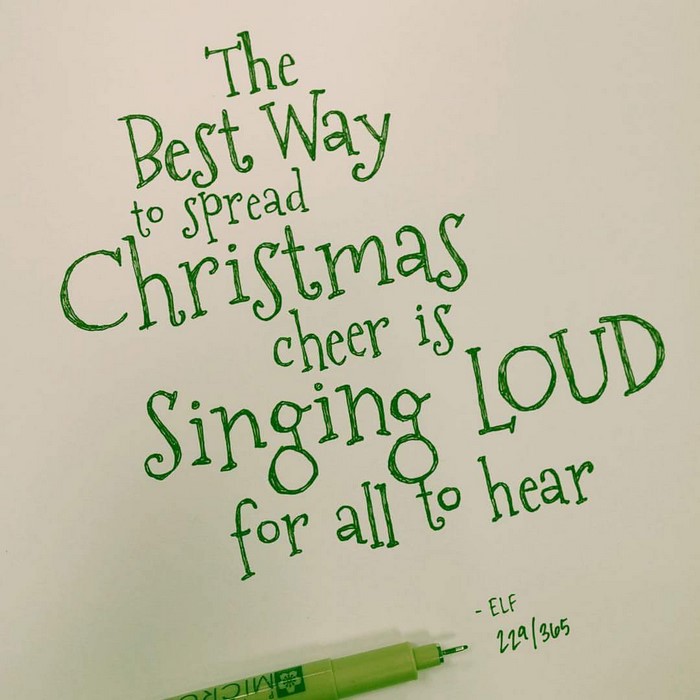 The
Best Way
to spread
Christmas
cheer is
Singing LOUD
for all to hear
- ELF
229/365
MICRO